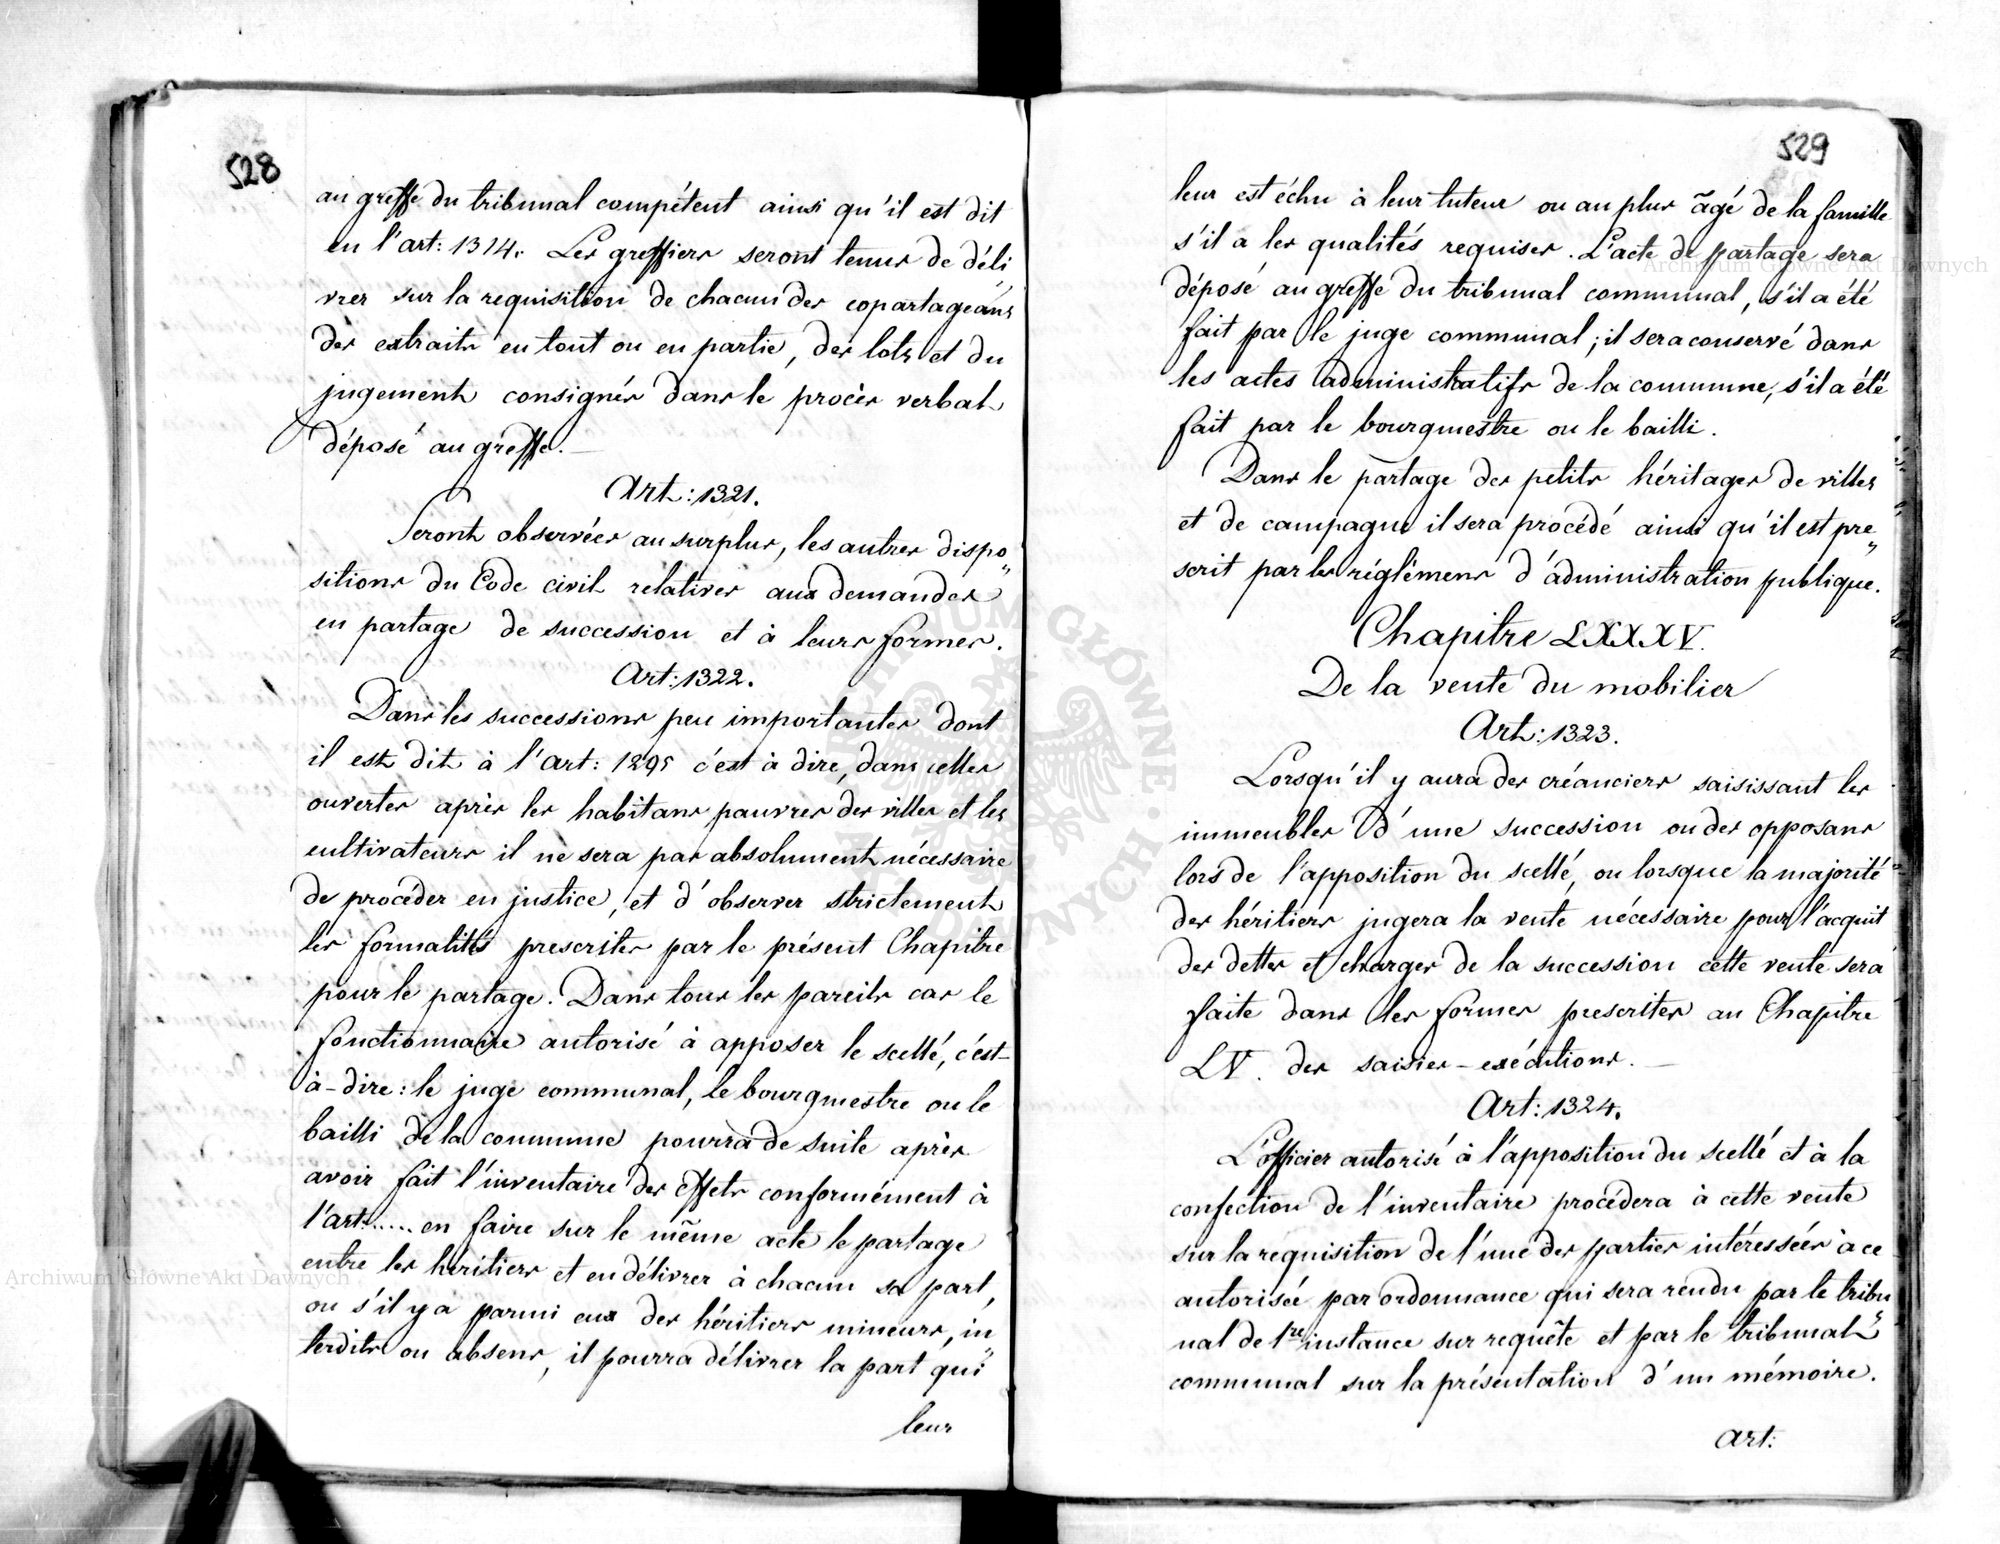 528
au greffe du tribunal compétent ainsi qu'il est dit
en l'art: 1314. Les greffiers seront tenus de déli
vrer sur la requisition de chacun des copartageans
des extraits en tout ou en partie, des lots et du
jugement consignés dans le procès verbal
déposé au greffe. —
Art: 1321.
Seront observées au surplus, les autres dispo„
sitions du Code civil relatives aux demandes
en partage de succession et à leurs formes.
Art: 1322.
Dans les successions peu importantes dont
il est dit à l'art: 1295 c'est à dire, dans celles
ouvertes après les habitans pauvres des villes et les
cultivateurs il ne sera pas absolument nécessaire
de procéder en justice, et d'observer strictement
les formalités prescrites par le présent Chapitre
pour le partage. Dans tous les pareils cas le
fonctionnaire autorisé à apposer le scellé, c'est-
à-dire: le juge communal, le bourgmestre ou le
bailli de la commune pourra de suite après
avoir fait l'inventaire des effets conformément à
l'art:..... en faire sur le même acte le partage
entre les héritiers et en délivrer à chacun sa part,
ou s'il y a parmi eux des héritiers mineurs, in„
terdits ou absens, il pourra délivrer la part qui
leur
529
leur est échu à leur tuteur ou au plus âgé de la famille
s'il a les qualités requises. L'acte de partage sera
déposé au greffe du tribunal communal, s'il a été
fait par le juge communal; il sera conservé dans
les actes administratifs de la commune, s'il a été
fait par le bourgmestre ou le bailli.
Dans le partage des petits héritages de villes
et de campagne il sera procédé ainsi qu'il est pre„
scrit par les réglémens d'administration publique.
Chapitre LXXXV.
De la vente du mobilier
Art: 1323.
Lorsqu'il y aura des créanciers saisissant les
immeubles d'une succession ou des opposans
lors de l'apposition du scellé, ou lorsque la majorité
des héritiers jugera la vente nécessaire pour l'acquit
des dettes et charges de la succession cette vente sera
faite dans les formes prescrites au Chapitre
LV. des saisies-exécutions. —
Art: 1324.
L'officier autorisé à l'apposition du scellé et à la
confection de l'inventaire procédera à cette vente
sur la requisition de l'une des parties intéressées à ce
autorisée par ordonnance qui sera rendu par le tribu„
nal de 1re instance sur requête et par le tribunal
communal sur la présentation d'un mémoire.
art:
Archiwum Główne Akt Dawnych
Archiwum Główne Akt Dawnych
ARCHIWUM GŁÓWNE · AKT DAWNYCH ·